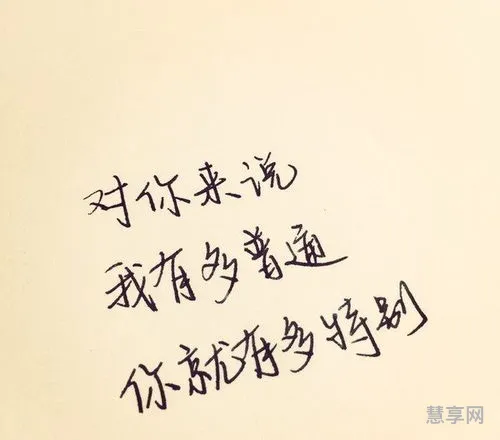 对你来说
我有多普通
你就有多特别
慧享网